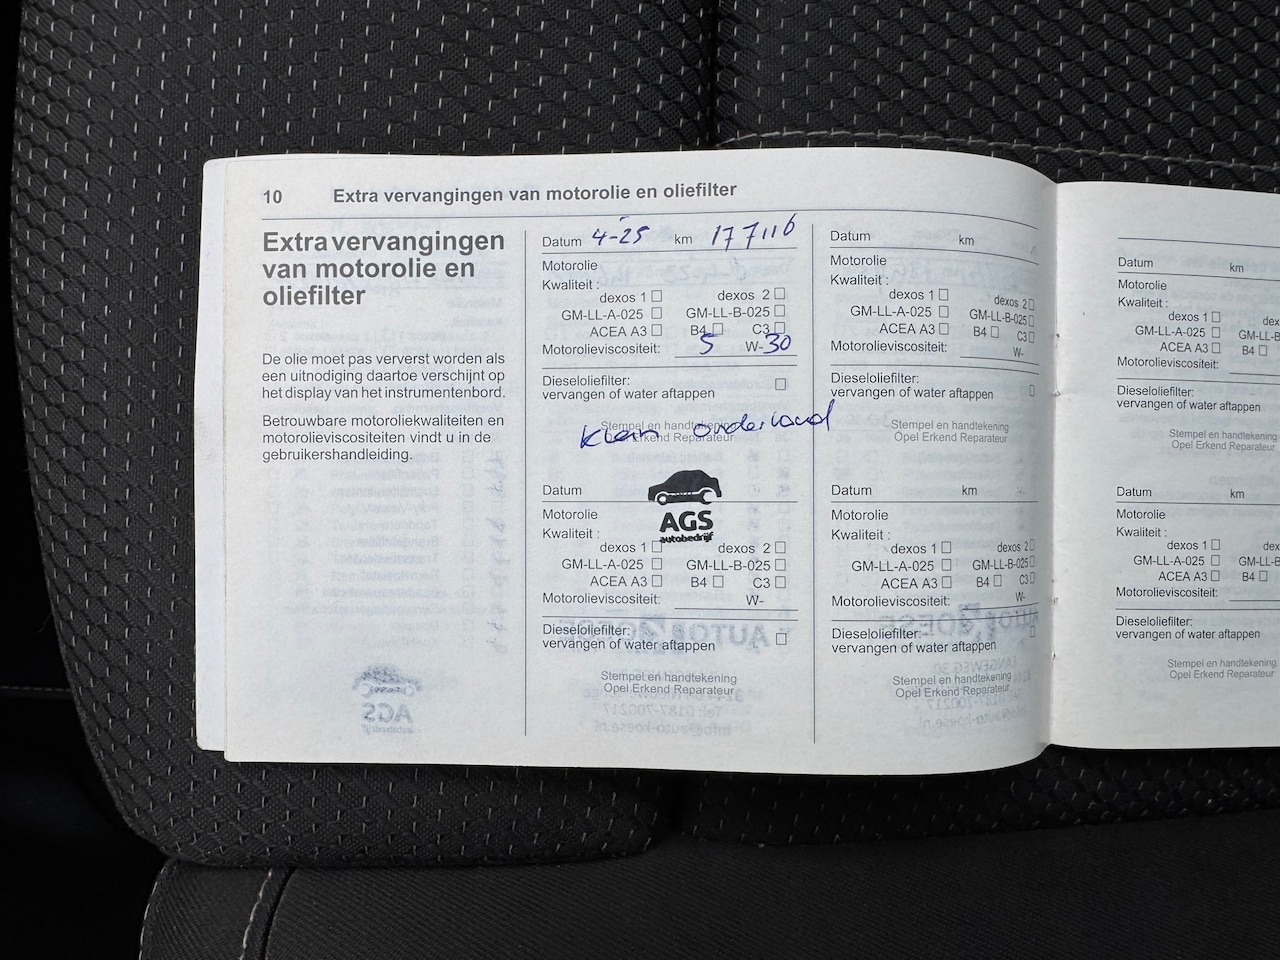 10 Extra vervangingen van motorolie en oliefilter
Extra vervangingen
van motorolie en
oliefilter
De olie moet pas ververst worden als
een uitnodiging daartoe verschijnt op
het display van het instrumentenbord.
Betrouwbare motoroliekwaliteiten en
motorolieviscositeiten vindt u in de
gebruikershandleiding.
Datum 4-25 km 177116
Motorolie
Kwaliteit :
dexos 1 dexos 2
GM-LL-A-025 GM-LL-B-025
ACEA A3 B4 C3
Motorolieviscositeit: 5 W-30
Dieseloliefilter:
vervangen of water aftappen
Stempel en handtekening
Opel Erkend Reparateur
Klein onderhoud
AGS
autobedrijf
Datum
Motorolie
Kwaliteit :
dexos 1 dexos 2
GM-LL-A-025 GM-LL-B-025
ACEA A3 B4 C3
Motorolieviscositeit: W-
Dieseloliefilter:
vervangen of water aftappen
Stempel en handtekening
Opel Erkend Reparateur
Datum km
Motorolie
Kwaliteit :
dexos 1 dexos 2
GM-LL-A-025 GM-LL-B-025
ACEA A3 B4 C3
Motorolieviscositeit: W-
Dieseloliefilter:
vervangen of water aftappen
Stempel en handtekening
Opel Erkend Reparateur
Datum km
Motorolie
Kwaliteit :
dexos 1 dexos 2
GM-LL-A-025 GM-LL-B-025
ACEA A3 B4 C3
Motorolieviscositeit: W-
Dieseloliefilter:
vervangen of water aftappen
Stempel en handtekening
Opel Erkend Reparateur
Datum km
Motorolie
Kwaliteit :
dexos 1 dex
GM-LL-A-025 GM-LL-B
ACEA A3 B4
Motorolieviscositeit:
Dieseloliefilter:
vervangen of water aftappen
Stempel en handtekening
Opel Erkend Reparateur
Datum km
Motorolie
Kwaliteit :
dexos 1 dex
GM-LL-A-025 GM-LL-B
ACEA A3 B4
Motorolieviscositeit:
Dieseloliefilter:
vervangen of water aftappen
Stempel en handtekening
Opel Erkend Reparateur